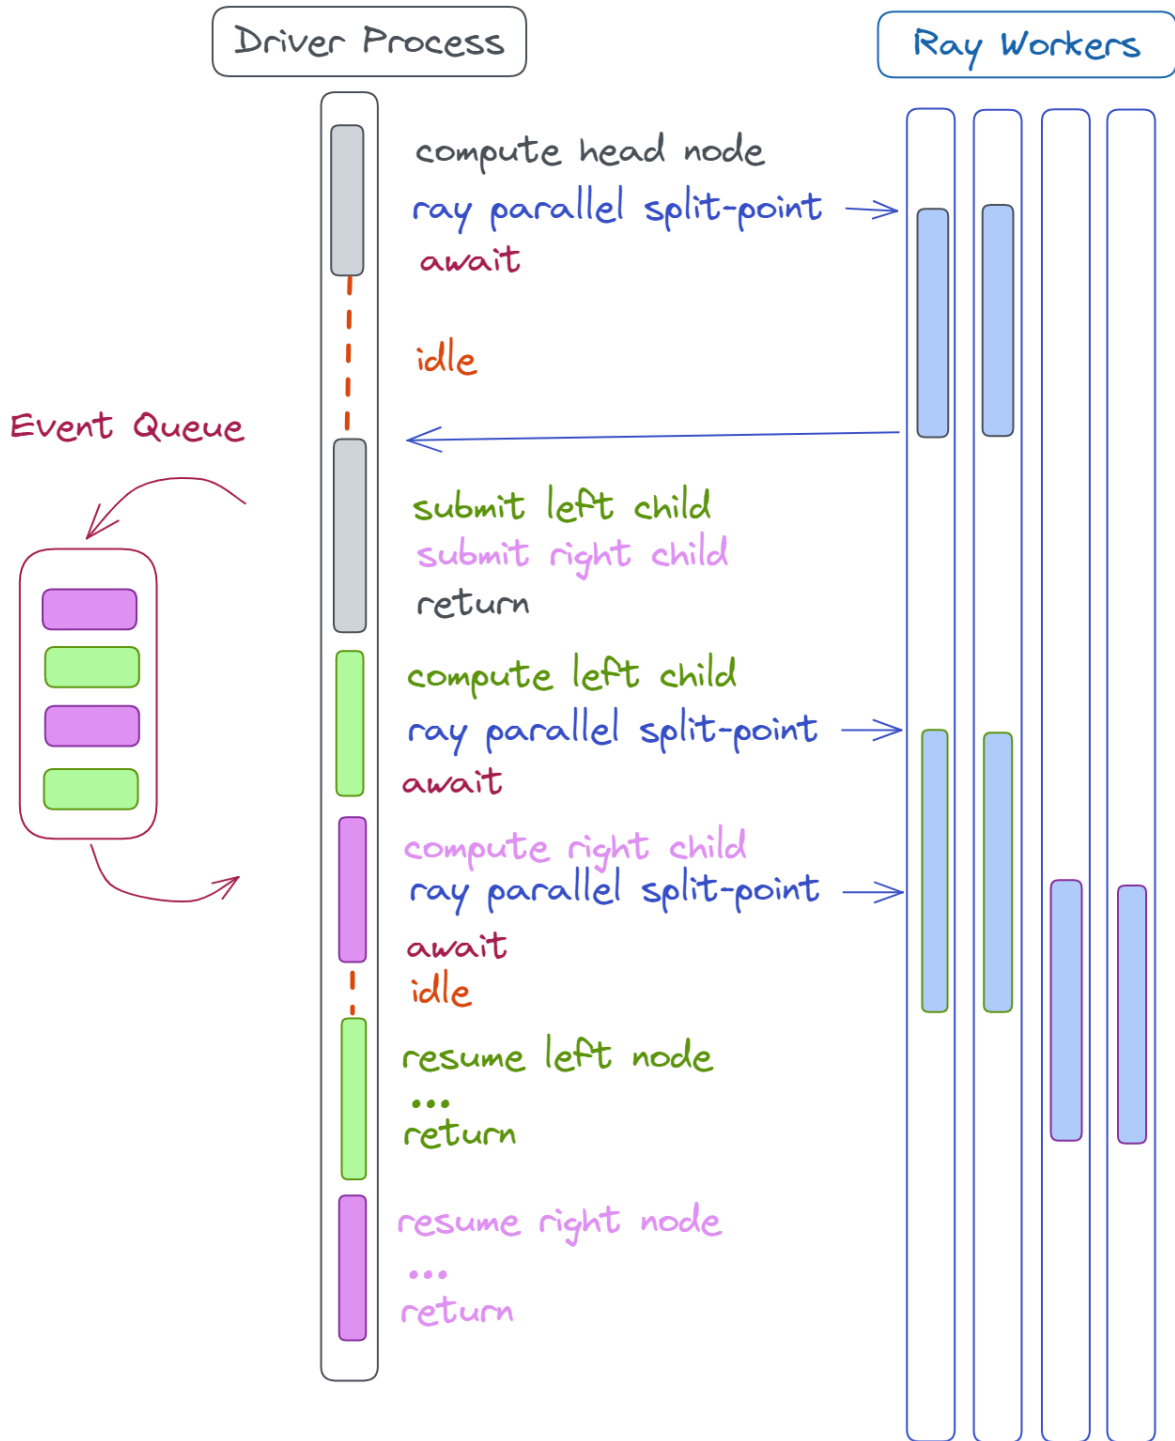 Driver Process
Ray Workers
compute head node
ray parallel split-point
await
idle
Event Queue
submit left child
submit right child
return
compute left child
ray parallel split-point
await
compute right child
ray parallel split-point
await
idle
resume left node
...
return
resume right node
...
return